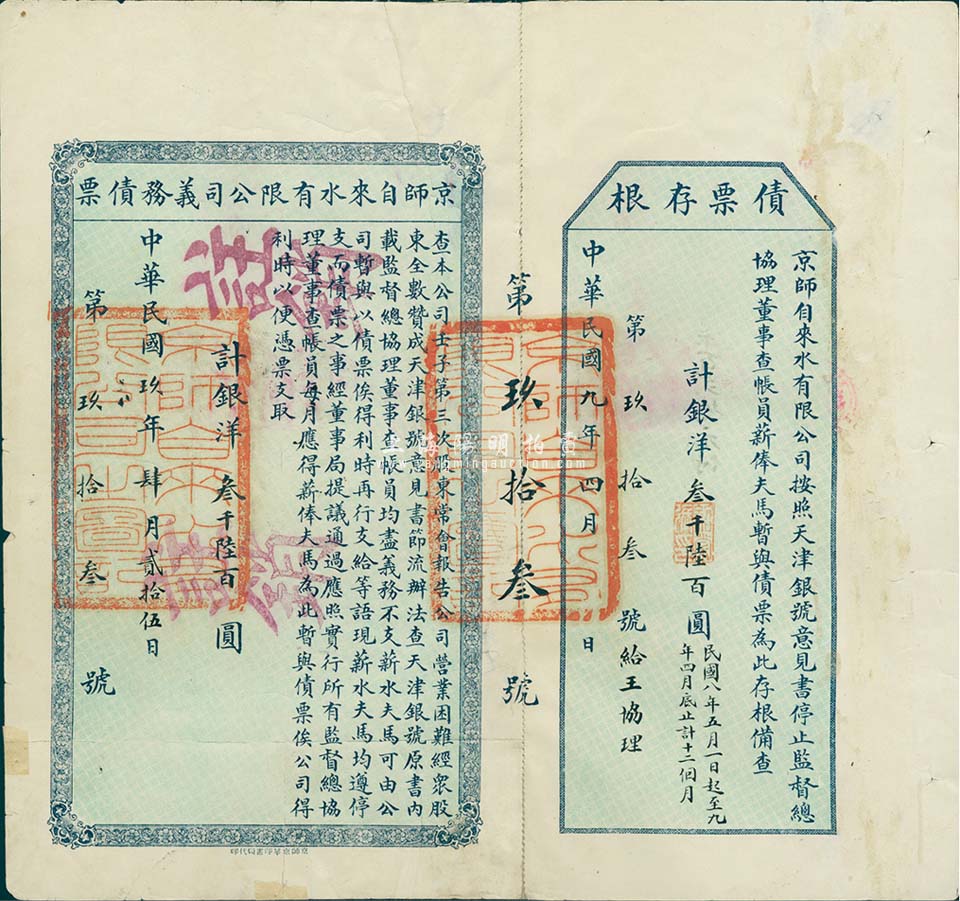 債票存根
京師自來水有限公司按照天津銀號意見書停止監督總
協理董事查帳員薪俸夫馬暫與債票為此存根備查
計銀洋 叁千陸百圓
民國八年五月一日起至九
年四月底止計十二個月
第 玖 拾 叁 號給王協理
中華民國九年四月 日
第 玖 拾 叁 號
京師自來水有限公司義務債票
查本公司壬子第三次股東常會報告公司營業困難經眾股
東全數贊成天津銀號意見書節流辦法查天津銀號原書內
載監督總協理董事查帳員均盡義務不支薪水夫馬可由公
司暫與以債票俟得利時再行支給等語現薪水夫馬均遵停
支而債票之事經董事局提議通過應照實行所有監督總協
理董事查帳員每月應得薪俸夫馬為此暫與債票俟公司得
利時以便憑票支取
計銀洋 叁千陸百 圓
中華民國玖年肆月貳拾伍日
第 玖 拾 叁 號
上海陽明拍賣
www.yangmingauction.com